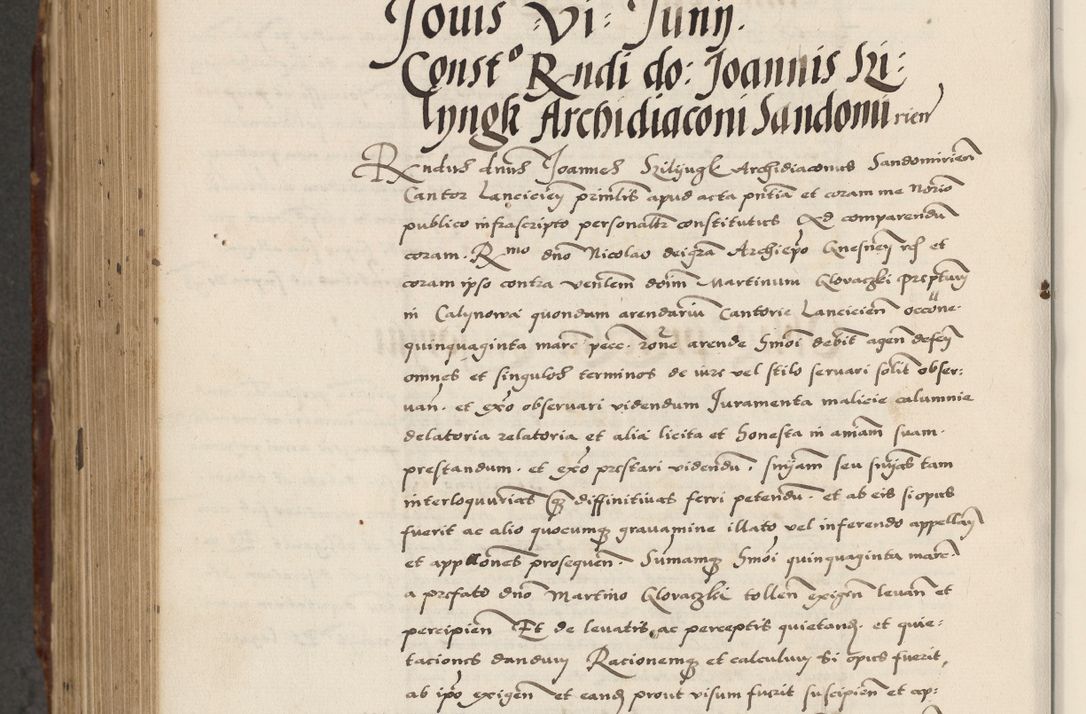 Jouis · Vi · Junij.
Constº Rndi do: Joannis Szi:
lyngk Archidiaconi Sandomirien
Rndus dnus Joannes Szilyngk Archidiaconus Sandomirien
Cantor Lancicien prinlis apud acta pntia et coram me Norio
publico infrascripto personalr constitutus Ad comparendu
coram Rmo dno Nicolao dei gra Archiepo Gnesnen et
coram ipso contra venlem doim Martinum Glovaczki preptum
in Calynowa quondam arendariu Cantorie Lancicien occone
quinquaginta marc pecc rone arende hmoi debit agen defen
omnes et singulos terminos de iure vel stilo servari solit obser:
van et exo observari videndum Juramenta malicie calumnie
delatoria relatoria et alia licita et honesta in aniam suam
prestandum et exo prestari videndu snyam seu snyas tam
interloqutorias q diffinitivas ferri petendu et ab eis si opus
fuerit ac alio quocumq gravamine illato vel inferendo appellan
et appllones prosequen Sumamq hmoi quinquaginta marc
a prefato dno Martino Glovaczki tollen exigen levan et
percipien Et de levatis ac perceptis quietand et quie:
taciones dandum Racionemq et calculum si opus fuerit,
ab ipo exigen et eand prout visum fuerit suscipien et ap: